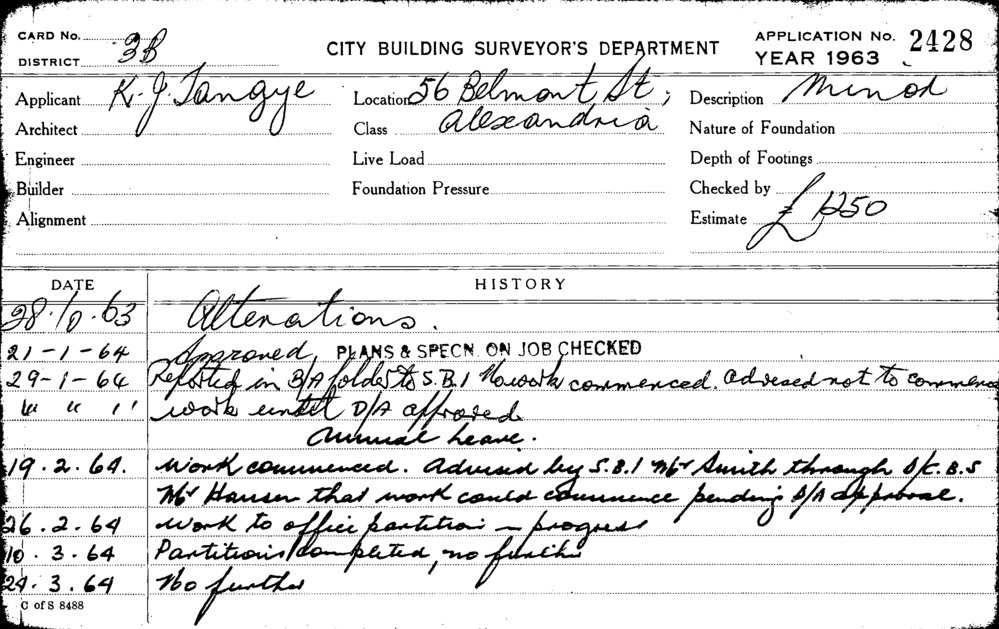 CARD No.
DISTRICT 3B
CITY BUILDING SURVEYOR'S DEPARTMENT
APPLICATION No. 2428
YEAR 1963
Applicant K. J. Tangye
Location 56 Belmont St;
Description Minor
Architect
Class Alexandria
Nature of Foundation
Engineer
Live Load
Depth of Footings
Builder
Foundation Pressure
Checked by
Alignment
Estimate £1250
DATE HISTORY
28.10.63 Alterations.
21-1-64 Approved. PLANS & SPECN. ON JOB CHECKED
29-1-64 Reported in B/A folder to S.B.I No work commenced. advised not to commence
" " " work until D/A approved
Annual Leave.
19.2.64. Work commenced. Advised by S.B.I Mr Smith through D/C.B.S
Mr Hauser that work could commence pending D/A approval.
26.2.64 Work to office partition in progress
10.3.64 Partitions completed, no further
24.3.64 No further
C of S 8488